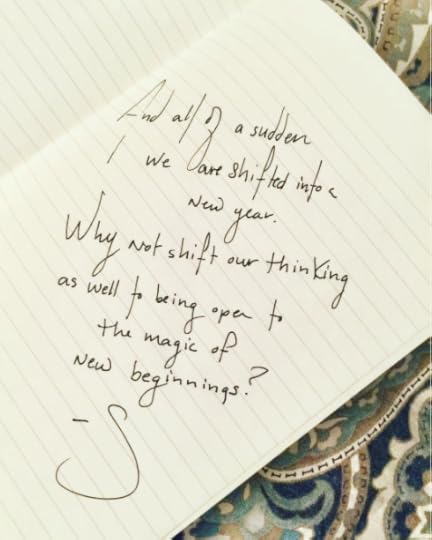 And all of a sudden
we are shifted into a
new year.
Why not shift our thinking
as well to being open to
the magic of
new beginnings?
-S